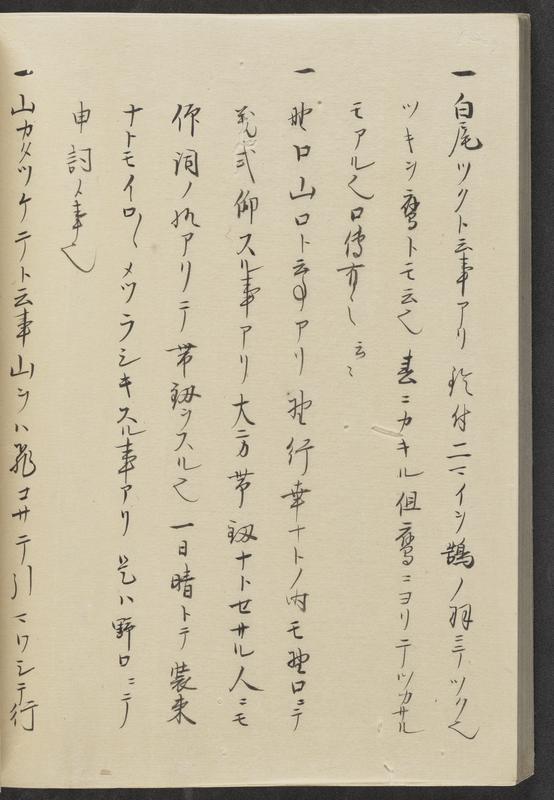 一白尾ツクト云事アリ鈴付二マイシ鵠ノ羽ニテツク也
ツキシ鷹トモ云也春ニカキル但鷹ニヨリテツカサル
モアル也口傳有之云〻
一野口山口ト云事アリ野行幸ナトノ時モ野口ニテ
仰スル事アリ大方帯釼ナトセサル人ニモ
仰詞ノ アリテ帯釼ヲスル也一日晴トテ装束
ナトモイロ〱メツラシキスル事アリ是ハ野口ニテ
申詞ノ事也
一山カタツケテト云事山ヲハ コサテ引マワシテ行